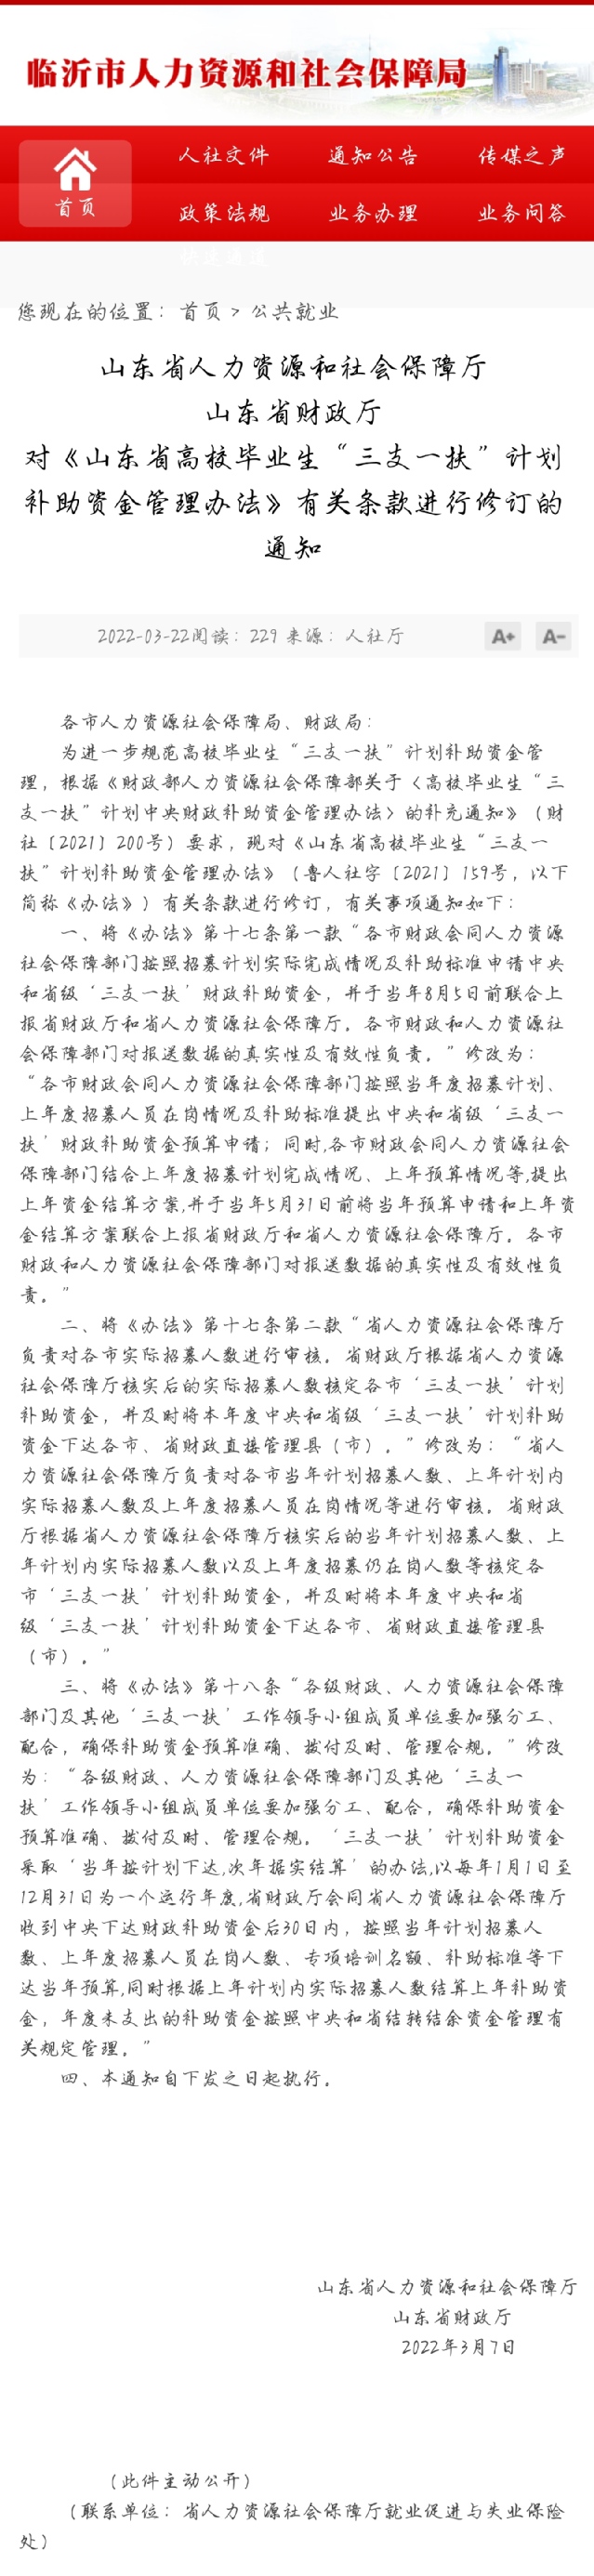 临沂市人力资源和社会保障局
人社文件 通知公告 传媒之声
首页
政策法规 业务办理 业务问答
您现在的位置：首页 > 公共就业
山东省人力资源和社会保障厅
山东省财政厅
对《山东省高校毕业生“三支一扶”计划
补助资金管理办法》有关条款进行修订的
通知
2022-03-22阅读：229 来源：人社厅 A+ A-
各市人力资源社会保障局、财政局：
为进一步规范高校毕业生“三支一扶”计划补助资金管
理，根据《财政部人力资源社会保障部关于〈高校毕业生“三
支一扶”计划中央财政补助资金管理办法〉的补充通知》（财
社〔2021〕200号）要求，现对《山东省高校毕业生“三支一
扶”计划补助资金管理办法》（鲁人社字〔2021〕159号，以下
简称《办法》）有关条款进行修订，有关事项通知如下：
一、将《办法》第十七条第一款“各市财政会同人力资源
社会保障部门按照招募计划实际完成情况及补助标准申请中央
和省级‘三支一扶’财政补助资金，并于当年8月5日前联合上
报省财政厅和省人力资源社会保障厅。各市财政和人力资源社
会保障部门对报送数据的真实性及有效性负责。”修改为：
“各市财政会同人力资源社会保障部门按照当年度招募计划、
上年度招募人员在岗情况及补助标准提出中央和省级‘三支一
扶’财政补助资金预算申请；同时,各市财政会同人力资源社会
保障部门结合上年度招募计划完成情况、上年预算情况等,提出
上年资金结算方案,并于当年5月31日前将当年预算申请和上年资
金结算方案联合上报省财政厅和省人力资源社会保障厅。各市
财政和人力资源社会保障部门对报送数据的真实性及有效性负
责。”
二、将《办法》第十七条第二款“省人力资源社会保障厅
负责对各市实际招募人数进行审核。省财政厅根据省人力资源
社会保障厅核实后的实际招募人数核定各市‘三支一扶’计划
补助资金，并及时将本年度中央和省级‘三支一扶’计划补助
资金下达各市、省财政直接管理县（市）。”修改为：“省人
力资源社会保障厅负责对各市当年计划招募人数、上年计划内
实际招募人数及上年度招募人员在岗情况等进行审核。省财政
厅根据省人力资源社会保障厅核实后的当年计划招募人数、上
年计划内实际招募人数以及上年度招募仍在岗人数等核定各
市‘三支一扶’计划补助资金，并及时将本年度中央和省
级‘三支一扶’计划补助资金下达各市、省财政直接管理县
（市）。”
三、将《办法》第十八条“各级财政、人力资源社会保障
部门及其他‘三支一扶’工作领导小组成员单位要加强分工、
配合，确保补助资金预算准确、拨付及时、管理合规。”修改
为：“各级财政、人力资源社会保障部门及其他‘三支一
扶’工作领导小组成员单位要加强分工、配合，确保补助资金
预算准确、拨付及时、管理合规。‘三支一扶’计划补助资金
采取‘当年按计划下达,次年据实结算’的办法,以每年1月1日至
12月31日为一个运行年度,省财政厅会同省人力资源社会保障厅
收到中央下达财政补助资金后30日内，按照当年计划招募人
数、上年度招募人员在岗人数、专项培训名额、补助标准等下
达当年预算,同时根据上年计划内实际招募人数结算上年补助资
金，年度未支出的补助资金按照中央和省结转结余资金管理有
关规定管理。”
四、本通知自下发之日起执行。
山东省人力资源和社会保障厅
山东省财政厅
2022年3月7日
（此件主动公开）
（联系单位：省人力资源社会保障厅就业促进与失业保险
处）